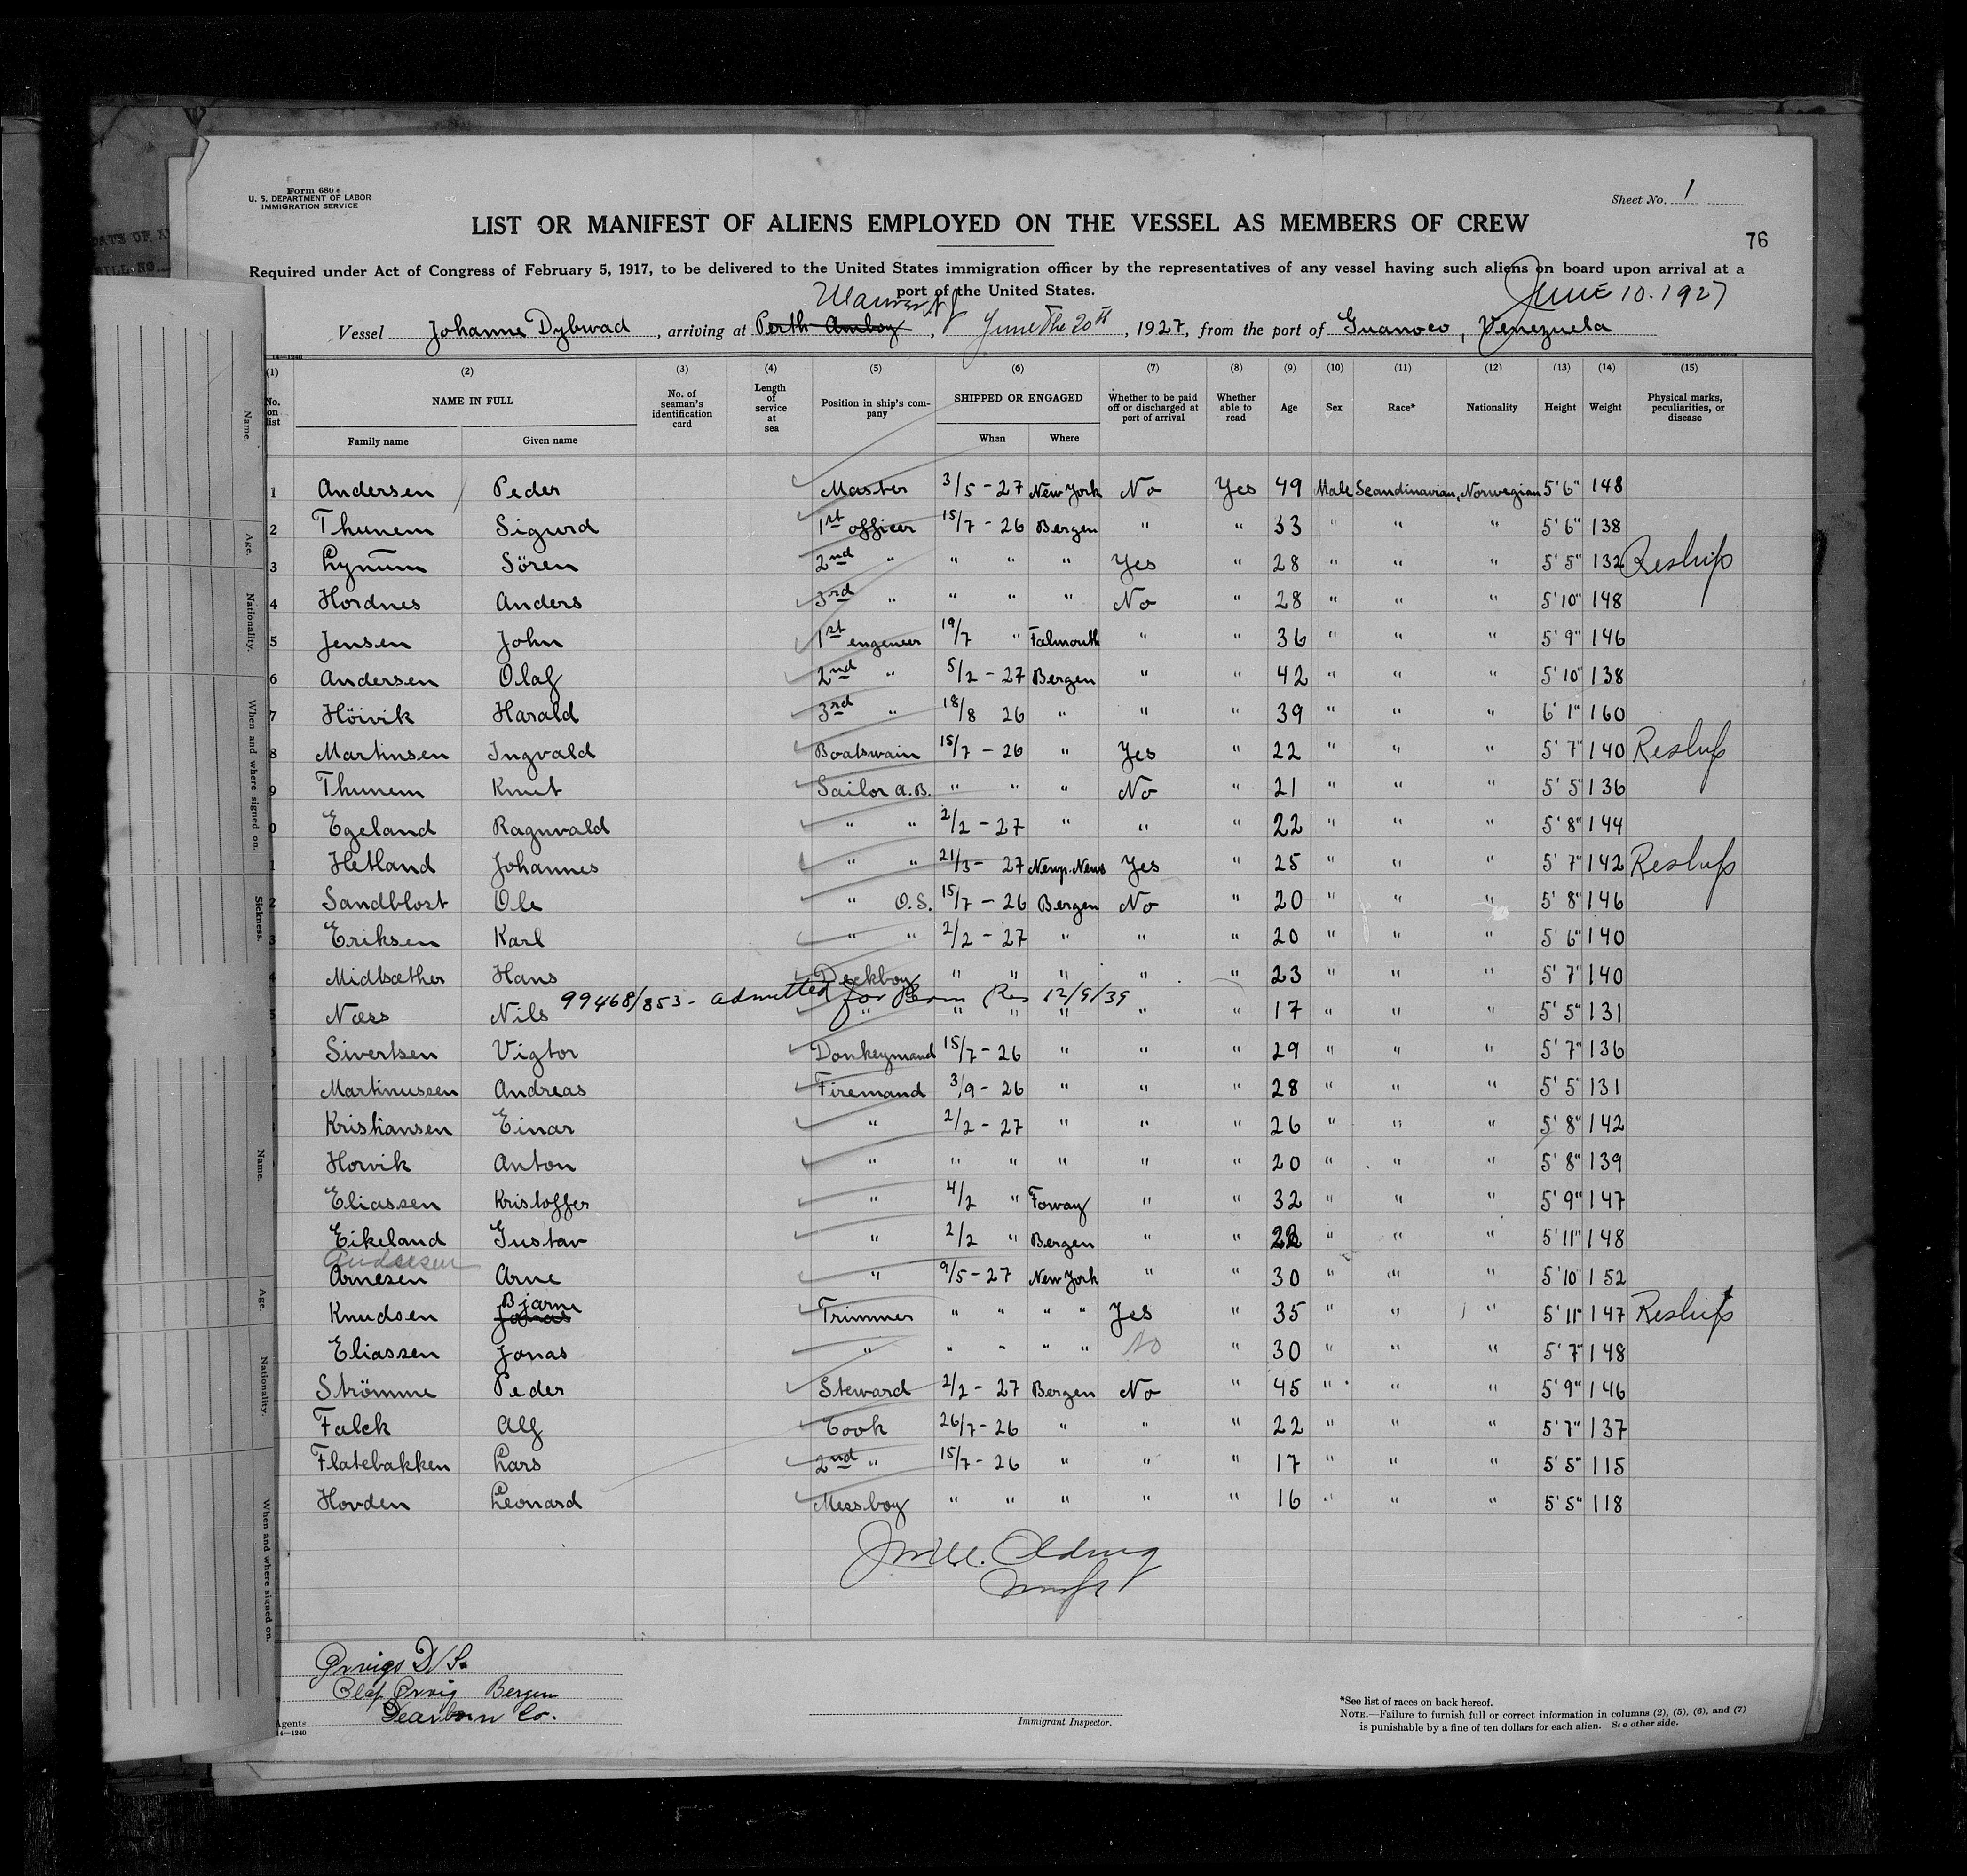 Form 680
U. S. DEPARTMENT OF LABOR
IMMIGRATION SERVICE
Sheet No. 1
LIST OR MANIFEST OF ALIENS EMPLOYED ON THE VESSEL AS MEMBERS OF CREW
76
Required under Act of Congress of February 5, 1917, to be delivered to the United States immigration officer by the representatives of any vessel having such aliens on board upon arrival at a
port of the United States.
JUNE 10. 1927
Vessel Johanne Dybwad, arriving at Perth Amboy, June The 20th, 1927, from the port of Guanoco, Venezuela
14—1240
(1) (2) (3) (4) (5) (6) (7) (8) (9) (10) (11) (12) (13) (14) (15)
No. on list NAME IN FULL Family name Given name No. of seaman's identification card Length of service at sea Position in ship's company SHIPPED OR ENGAGED When Where Whether to be paid off or discharged at port of arrival Whether able to read Age Sex Race* Nationality Height Weight Physical marks, peculiarities, or disease
1 Andersen Peder Master 3/5 - 27 New York No Yes 49 Male Scandinavian, Norwegian 5' 6" 148
2 Thunem Sigurd 1st officer 15/7 - 26 Bergen " " 33 " " " 5' 6" 138
3 Lynum Sören 2nd " " " " Yes " 28 " " " 5' 5" 132 Reship
4 Hordnes Anders 3rd " " " " No " 28 " " " 5' 10" 148
5 Jensen John 1st engeneer 19/7 " Falmouth " " 36 " " " 5' 9" 146
6 Andersen Olaf 2nd " 5/2 - 27 Bergen " " 42 " " " 5' 10" 138
7 Höivik Harald 3rd " 18/8 26 " " " 39 " " " 6' 1" 160
8 Martinsen Ingvald Boatswain 15/7 - 26 " Yes " 22 " " " 5' 7" 140 Reship
9 Thunem Knut Sailor A.B. " " " No " 21 " " " 5' 5" 136
0 Egeland Ragnvald " " 2/2 - 27 " " " 22 " " " 5' 8" 144
1 Hetland Johannes " " 21/3 - 27 Newp. News Yes " 25 " " " 5' 7" 142 Reship
2 Sandblost Ole " O.S. 15/7 - 26 Bergen No " 20 " " " 5' 8" 146
3 Eriksen Karl " " 2/2 - 27 " " " 20 " " " 5' 6" 140
4 Midtsæther Hans Deckboy " " " " " 23 " " " 5' 7" 140
99468/853 - admitted for Perm Res 12/9/39
5 Næss Nils " " " " " " 17 " " " 5' 5" 131
Sivertsen Vigtor Donkeymand 15/7 - 26 " " " 29 " " " 5' 7" 136
Martinussen Andreas Firemand 3/9 - 26 " " " 28 " " " 5' 5" 131
Kristiansen Einar " 2/2 - 27 " " " 26 " " " 5' 8" 142
Horvik Anton " " " " " " 20 " " " 5' 8" 139
Eliassen Kristoffer " 4/2 " Foway " " 32 " " " 5' 9" 147
Eikeland Gustav " 2/2 " Bergen " " " " " 5' 11" 148
Arnesen Arne " 9/5 - 27 New York " " 30 " " " 5' 10" 152
Bjarne
Knudsen Jonas Trimmer " " " " Yes " 35 " " " 5' 11" 147 Reship
Eliassen Jonas " " " " " No " 30 " " " 5' 7" 148
Strömme Peder Steward 2/2 - 27 Bergen No " 45 " " " 5' 9" 146
Falck Alf Cook 26/7 - 26 " " " 22 " " " 5' 7" 137
Flatebakken Lars 2nd " 15/7 - 26 " " " 17 " " " 5' 5" 115
Hovden Leonard Messboy " " " " " 16 " " " 5' 5" 118
Olaf Orvig Bergen
Dearborn Co.
Agents
14—1240
Immigrant Inspector.
*See list of races on back hereof.
NOTE.—Failure to furnish full or correct information in columns (2), (5), (6), and (7)
is punishable by a fine of ten dollars for each alien. See other side.
Name.
Age.
Nationality.
When and where signed on.
Sickness.
Name.
Age.
Nationality.
When and where signed on.